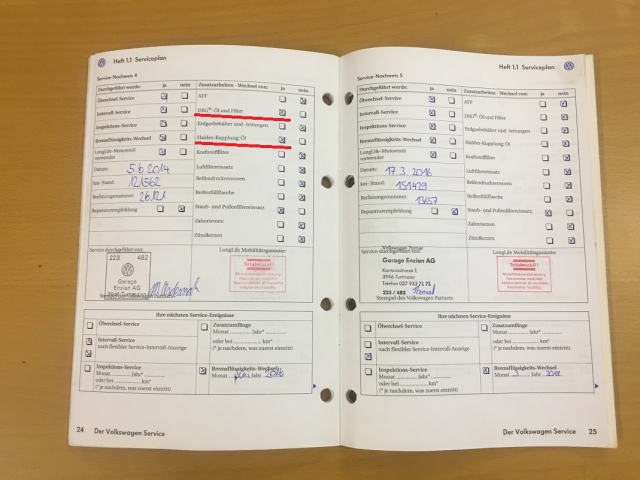 Heft 1.1 Serviceplan
Service-Nachweis 4
Durchgeführt wurde: ja nein
Ölwechsel-Service
Intervall-Service
Inspektions-Service
Bremsflüssigkeits-Wechsel
LongLife-Motorenöl
verwendet
Datum: 5.6.2014
km-Stand: 121562
Rechnungsnummer: 26121
Reparaturempfehlung
Zusatzarbeiten - Wechsel von: ja nein
ATF
DSG®: Öl und Filter
Erdgasbehälter und -leitungen
Haldex-Kupplung: Öl
Kraftstofffilter
Luftfiltereinsatz
Reifendruckensoren
Reifenfüllflasche
Staub- und Pollenfiltereinsatz
Zahnriemen
Zündkerzen
Service durchgeführt von:
223 482
Garage
Enzian AG
3946 Turtmann
LongLife Mobilitätsgarantie:
Totalmobil!
Ihre nächsten Service-Ereignisse
Ölwechsel-Service
Intervall-Service
nach flexibler Service-Intervall-Anzeige
Inspektions-Service
Monat Jahr*
oder bei km*
(* je nachdem, was zuerst eintritt)
Zusatzumfänge
Monat Jahr*
oder bei km*
(* je nachdem, was zuerst eintritt)
Bremsflüssigkeits-Wechsel
Monat Jahr 2016
24 Der Volkswagen Service
Heft 1.1 Serviceplan
Service-Nachweis 5
Durchgeführt wurde: ja nein
Ölwechsel-Service
Intervall-Service
Inspektions-Service
Bremsflüssigkeits-Wechsel
LongLife-Motorenöl
verwendet
Datum: 17.3.2016
km-Stand: 151429
Rechnungsnummer: 13457
Reparaturempfehlung
Zusatzarbeiten - Wechsel von: ja nein
ATF
DSG®: Öl und Filter
Erdgasbehälter und -leitungen
Haldex-Kupplung: Öl
Kraftstofffilter
Luftfiltereinsatz
Reifendrucksensoren
Reifenfüllflasche
Staub- und Pollenfiltereinsatz
Zahnriemen
Zündkerzen
Service durchgeführt von:
Volkswagen Partner
Garage Enzian AG
Kantonsstrasse 1
3946 Turtmann
Telefon 027 933 21 71
223 / 482
Stempel des Volkswagen Partners
LongLife Mobilitätsgarantie:
Totalmobil!
Ihre nächsten Service-Ereignisse
Ölwechsel-Service
Intervall-Service
nach flexibler Service-Intervall-Anzeige
Inspektions-Service
Monat Jahr*
oder bei km*
(* je nachdem, was zuerst eintritt)
Zusatzumfänge
Monat Jahr*
oder bei km*
(* je nachdem, was zuerst eintritt)
Bremsflüssigkeits-Wechsel
Monat 3 Jahr 2018
Der Volkswagen Service 25